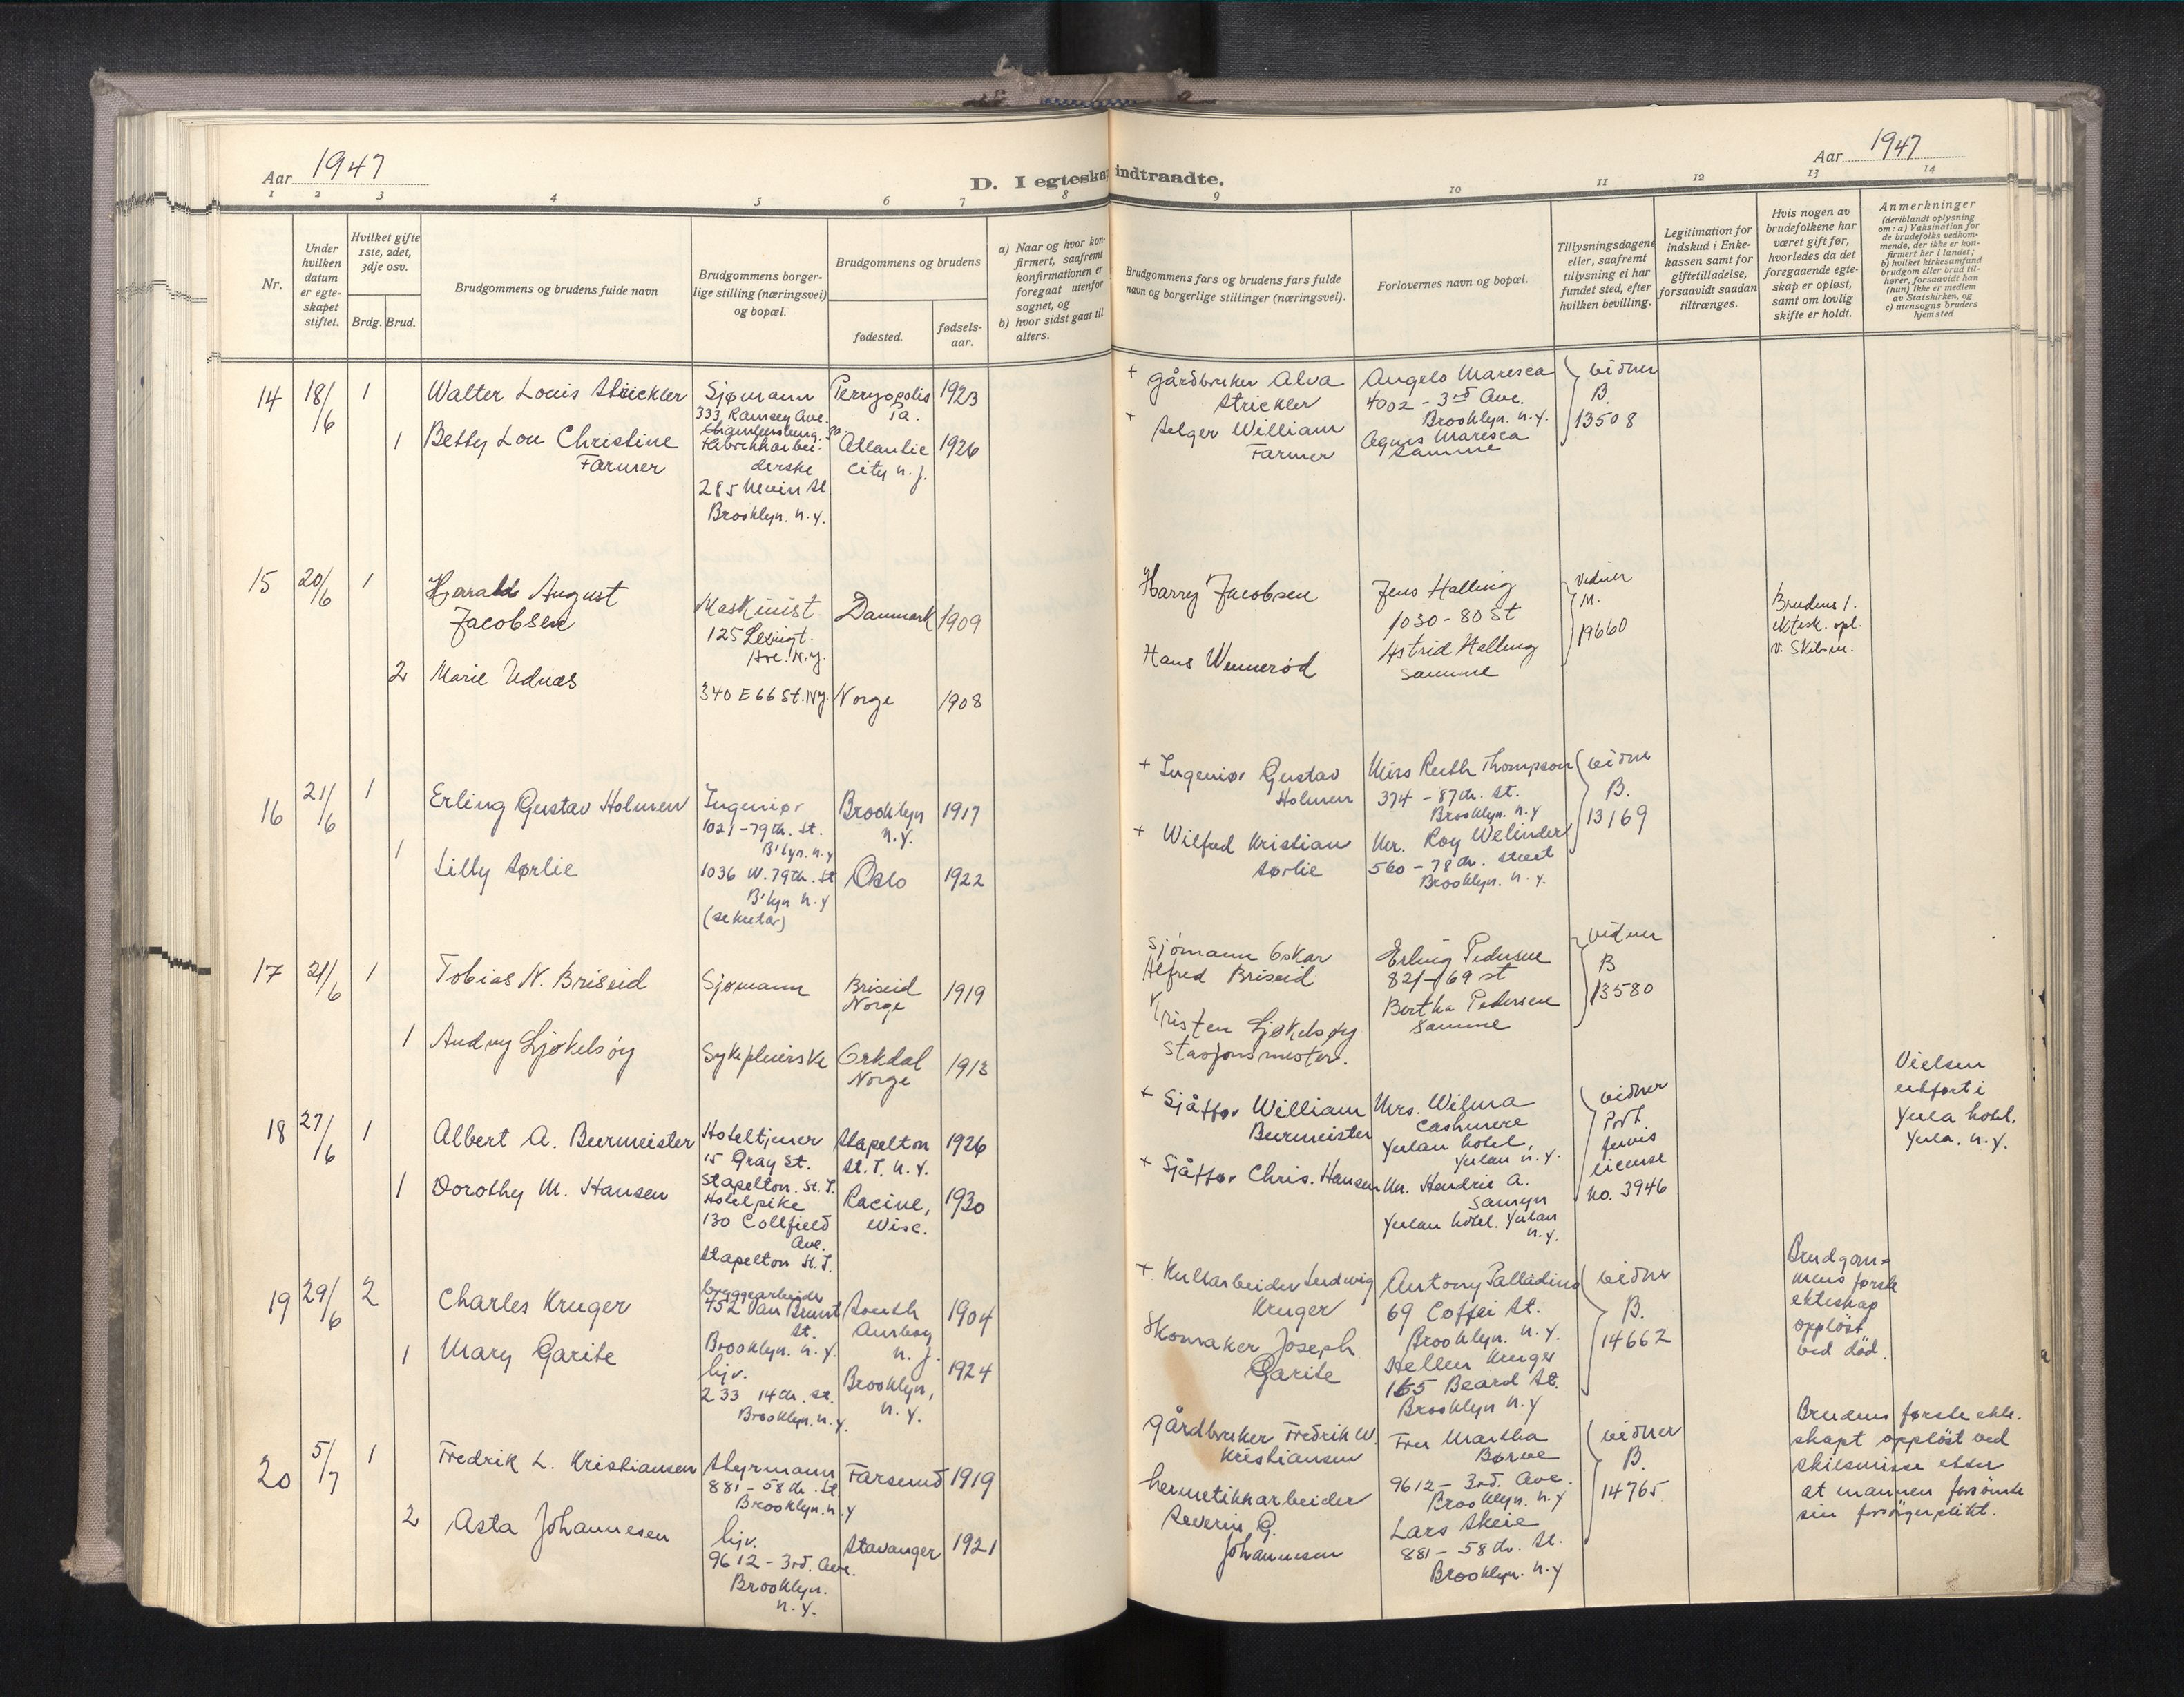 Aar 1947
D. I egteskap indtraadte.
Aar 1947
1 2 3 4 5 6 7 8 9 10 11 12 13 14
Nr.
Under
hvilken
datum
er egte-
skapet
stiftet.
Hvilket gifte
1ste, 2det,
3dje osv.
Brdg. Brud.
Brudgommens og brudens fulde navn
Brudgommens borger-
lige stilling (næringsvei)
og bopæl.
Brudgommens og brudens
fødested.
fødsels-
aar.
a) Naar og hvor kon-
firmert, saafremt
konfirmationen er
foregaat utenfor
sognet, og
b) hvor sidst gaat til
alters.
Brudgommens fars og brudens fars fulde
navn og borgerlige stillinger (næringsvei).
Forlovernes navn og bopæl.
Tillysningsdagene
eller, saafremt
tillysning ei har
fundet sted, efter
hvilken bevilling.
Legitimation for
indskud i Enke-
kassen samt for
giftetilladelse,
forsaavidt saadan
tiltrænges.
Hvis nogen av
brudefolkene har
været gift før,
hvorledes da det
foregaaende egte-
skap er opløst,
samt om lovlig
skifte er holdt.
Anmerkninger
(deriblandt oplysning
om: a) Vaksination for
de brudefolks vedkom-
mende, der ikke er kon-
firmert her i landet;
b) hvilket kirkesamfund
brudgom eller brud til-
hører, forsaavidt han
(hun) ikke er medlem
av Statskirken, og
c) utensogns bruders
hjemsted
14 18/6 1
Walter Louis Strickler
Sjømann
333 Ramsey Ave.
Chambersburg. Pa.
Perryopolis
Pa.
1923
+ gårdbruker Alva
Strickler
Angelo Maresca
4002 - 3rd Ave.
Brooklyn. n.y.
vidner
B.
13508
1
Betty Lou Christine
Farmer
Fabrikkarbei-
derske
285 Nevin St
Brooklyn. n.y.
Atlantic
City n.j.
1926
+ Selger William
Farmer
Agnes Maresca
Samme
15 20/6 1
Harald August
Jacobsen
Maskinist
125 Lexingt.
Ave. N.Y.
Danmark
1909
Harry Jacobsen
Jens Halling
1030 - 80 St
vidner
M.
19660
Brudens 1.
ektesk. opl.
v. Skilsm.
2
Marie Udnæs
340 E 66 St. NY.
Norge
1908
Hans Wennerød
Astrid Halling
Samme
16 21/6 1
Erling Gustav Holmen
Ingeniør
1021 - 79th. St.
B'lyn. n.y
Brooklyn
n.y.
1917
+ Ingeniør Gustav
Holmen
Miss Ruth Thompson
374 - 87th. St.
Brooklyn. n.y
vidner
B.
13169
1
Lilly Sørlie
1036 W. 79th. St
B'lyn n.y
(sekretær)
Oslo
1922
+ Wilfred Kristian
Sørlie
Mr. Roy Welinder
560 - 78th. street
Brooklyn. n.y.
17 21/6 1
Tobias N. Briseid
Sjømann
Briseid
Norge
1919
Sjømann Oskar
Alfred Briseid
Erling Pedersen
821 - 69 st
vidner
B
13580
1
Audny Ljøkelsøy
Sykepleierske
Orkdal
Norge
1913
Kristen Ljøkelsøy
Stasjonsmester.
Bertha Pedersen
Samme
18 27/6 1
Albert A. Burmeister
Hoteltjener
15 Gray St.
Stapelton. St. I.
Stapelton
St. I. N.Y.
1926
+ Sjåffør William
Burmeister
Mrs. Wilma
Cashmere
Yulan hotel,
Yulan n.y.
vidner
Port
Jervis
license
no. 3946
Vielsen
utført i
Yula hotel.
Yula. n.y.
1
Dorothy M. Hansen
Hotelpike
130 Collfield
Ave.
Stapelton St. I.
Racine,
Wisc.
1930
+ Sjåffør Chris. Hansen
Mr. Hendric A.
Samyn
Yulan hotel. Yulan
n.y.
19 29/6 2
Charles Kruger
bryggearbeider
452 Van Brunt
St.
Brooklyn. n.y.
South
Amboy
n.j.
1904
+ Kullarbeider Ludwig
Kruger
Antony Palladino
69 Coffei St.
Brooklyn. n.y.
vidner
B.
14662
Brudgom-
mens første
ekteskap
oppløst
ved død.
1
Mary Garite
hjv.
233 14th. st.
Brooklyn. n.y.
Brooklyn,
n.y.
1924
Skomaker Joseph
Garite
Hellen Kruger
165 Beard St.
Brooklyn n.y
20 5/7 1
Fredrik L. Kristiansen
Styrmann
881 - 58th. St
Brooklyn. n.y
Farsund
1919
gårdbruker Fredrik W.
Kristiansen
Fru Martha
Børve
9612 - 3rd. Ave.
Brooklyn. n.y
vidner
B.
14765
Brudens første ekte-
skapt oppløst ved
skilsmisse etter
at mannen forsømte
sin forsørgerplikt.
2
Asta Johannesen
hjv.
9612 - 3rd. Ave.
Brooklyn.
n.y.
Stavanger
1921
hermetikkarbeider
Severin G.
Johannesen
Lars Skeie
881 - 58th. St.
Brooklyn. n.y